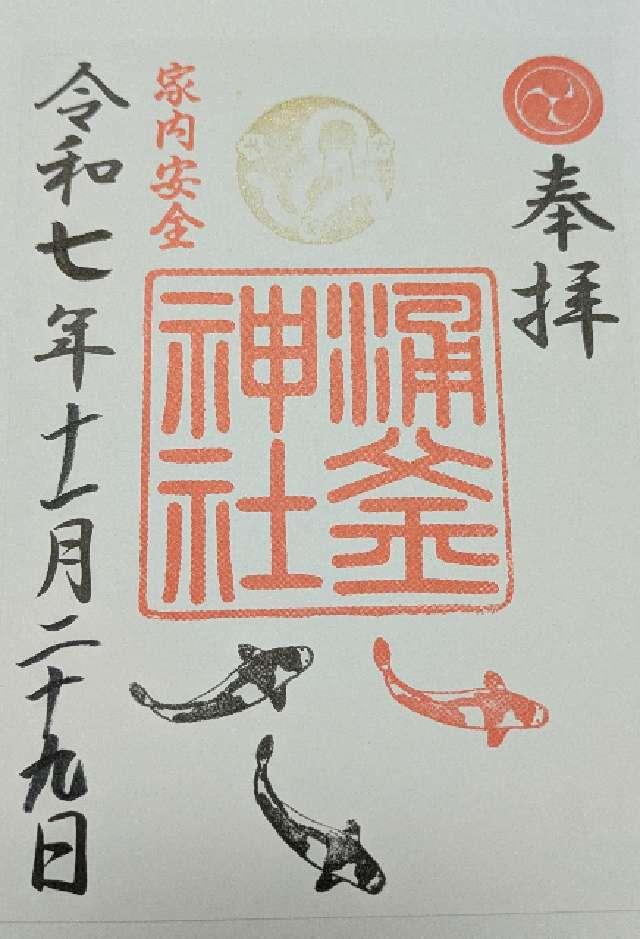 奉拝
涌釜
神社
家内安全
令和七年十一月二十九日